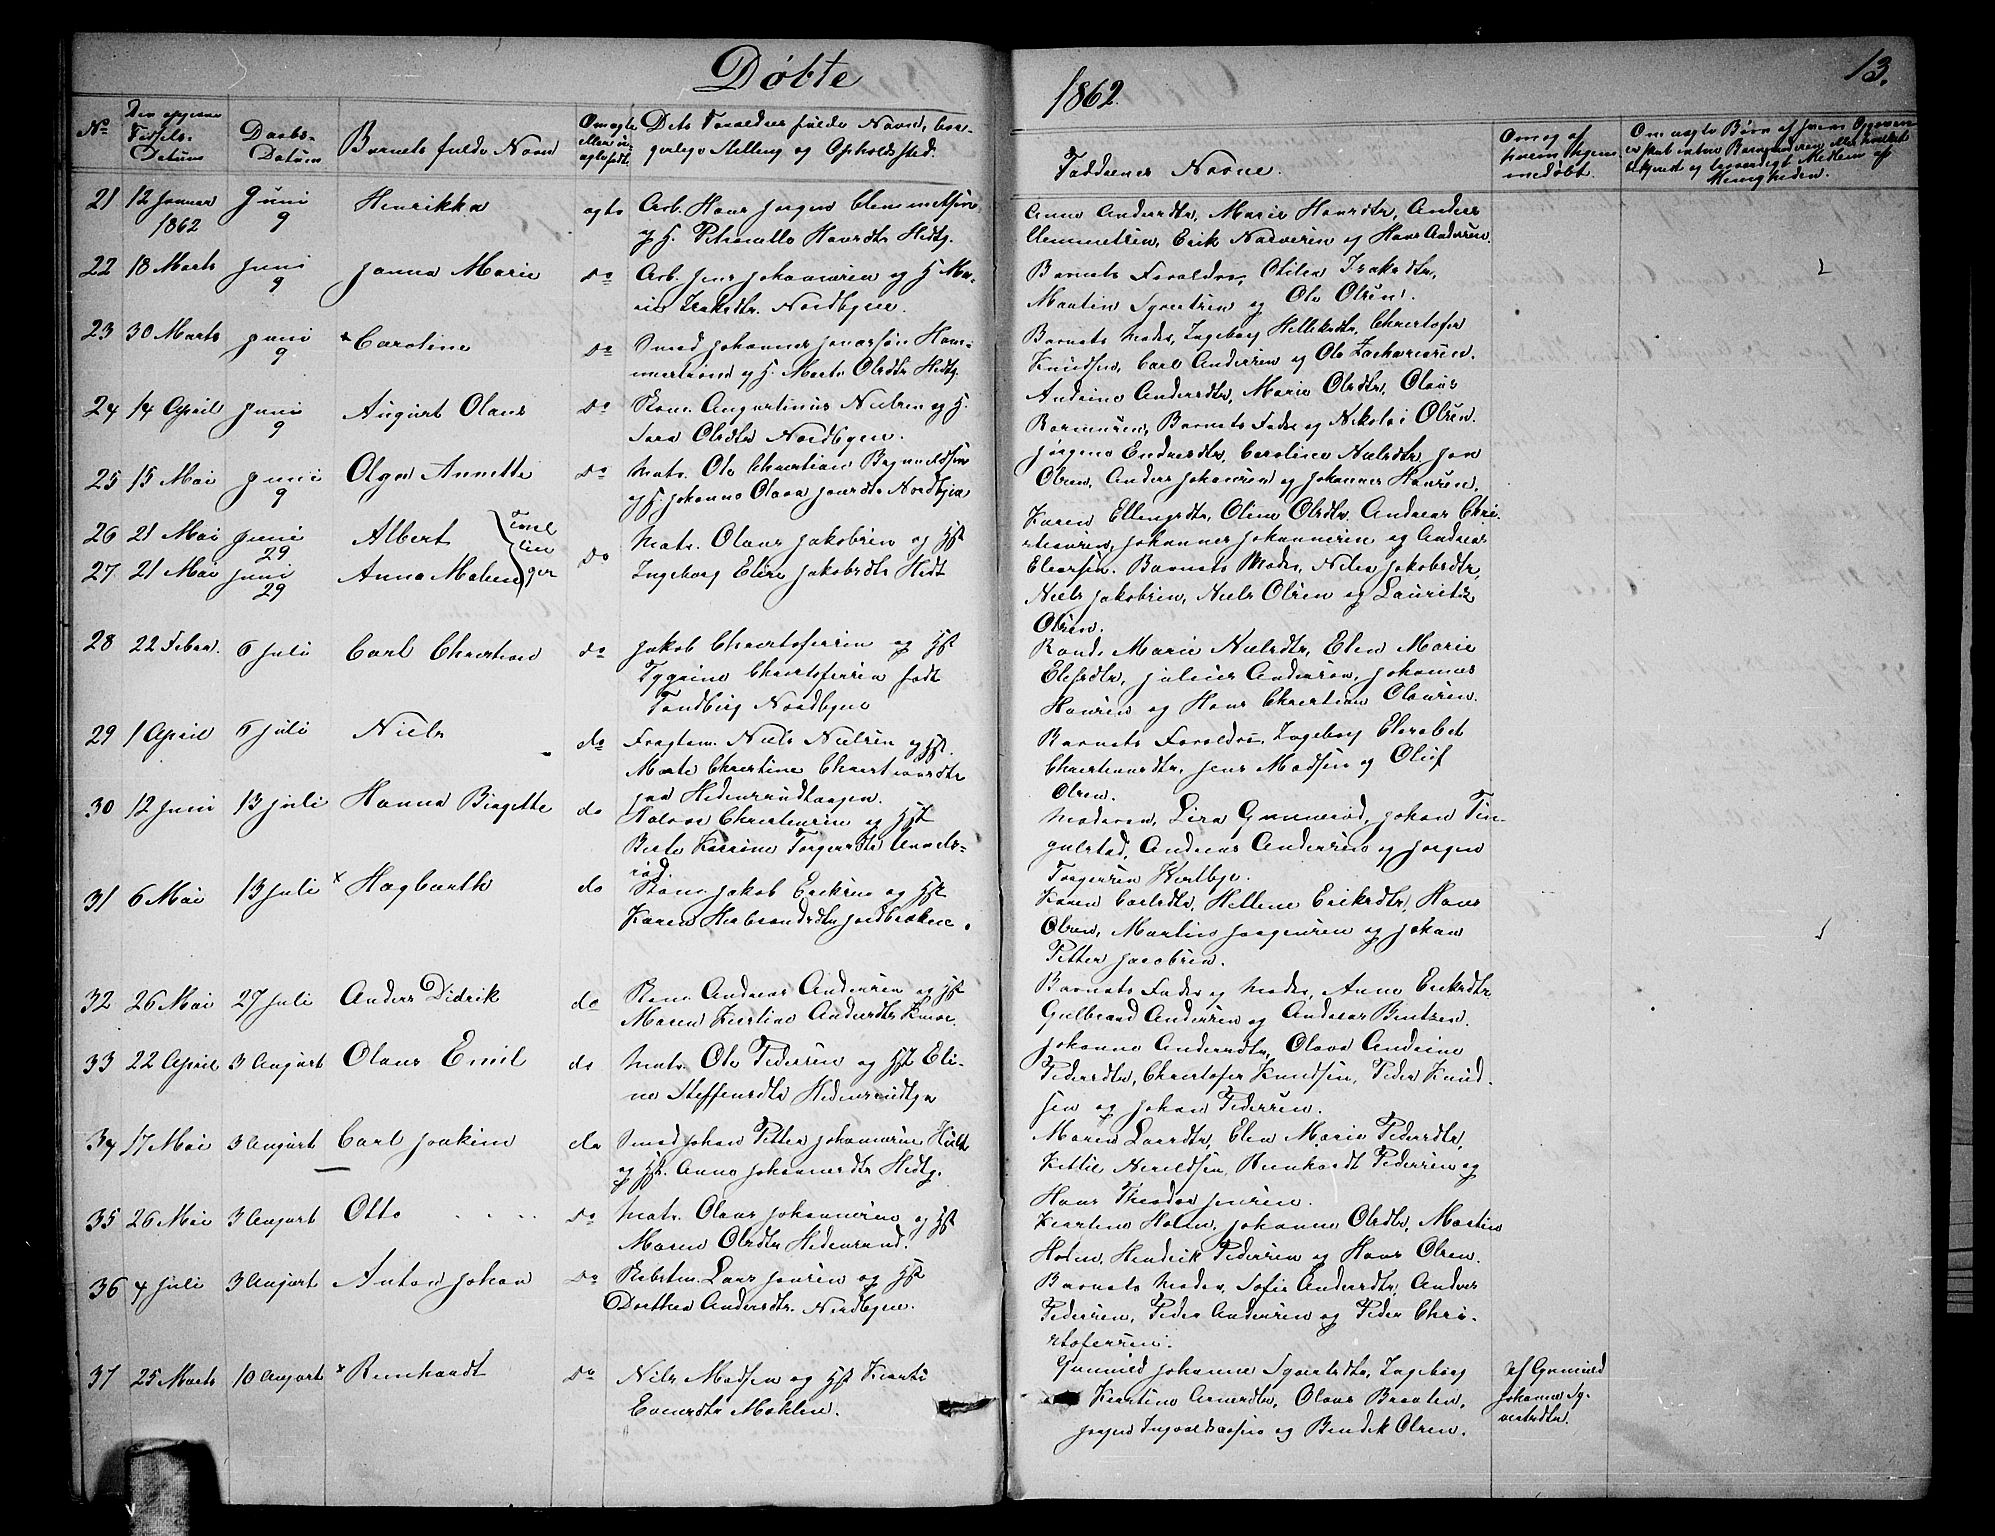 Døbte
1862.
13.
No
Fødsels-
Datum
Daabs-
Datum
Barnets fulde Navn
Om ægte
eller u-
ægte født.
Dets Forældres fulde Navne, bor-
gerlige Stilling og Opholdssted.
Faddernes Navne.
Om og af
hvem hjem-
medøbt.
21 12 Januar Juni Henrikka ægte Arb. Hans Jørgen Clemmetsen
1862 9 og H. Petronelle Hansdtr Hedtg.
Anne Andersdtr, Marie Hansdtr, Anders
Clemmetsen, Erik Narvesen og Hans Andersen.
22 18 Marts Juni Janna Marie do Arb. Jens Johannesen og H. Ma-
9 rie Isaksdtr. Nordbyen.
Barnets Forældre, Otilea Isaksdtr,
Martin Syvertsen og Ole Olsen.
23 30 Marts Juni × Caroline do Smed Johannes Jonassøn Ham-
9 og H. Marte Olsdtr Hedtg.
Barnets Moder, Ingeborg Helleksdtr, Christofer
Knudsen, Carl Andersen og Ole Zachariasen.
24 14 April Juni August Olaus do Augustinus Nielsen og H.
9 Sara Olsdtr Nordbyen.
Andrine Andersdtr, Marie Olsdtr, Olaus
Rasmusen, Barnets Fader og Nikolai Olsen.
25 15 Mai Juni Olga Annette do Matr. Ole Christian Brynildsen
9 og H. Johanne Olava Jensdtr Nordbyen
Jørgine Endresdtr, Caroline Nielsdtr, Jan
Olsen, Anders Johansen og Johannes Hansen.
26 21 Mai Juni Albert Tvil
29 lin
27 21 Mai Juni Anna Malene ger
29
do Matr. Olaus Jakobsen og Hst
Ingeborg Elise Jakobsdtr Hedt
Karen Ellingsdtr, Oline Olsdtr, Andreas Chri-
stiansen, Johannes Johannesen og Andreas
Eliassen. Barnets Moder, Nilea Jakobsdtr,
Niels Jakobsen, Niels Olsen og Lauritz
Olsen.
28 22 Febar. 6 Juli Carl Christian do Jakob Christofersen og Hst
Christofersen født
Tandberg Nordbyen
Marie Nielsdtr, Elen Marie
Julius Andersen, Johannes
Hansen og Hans Christian Olausen.
29 1 April 6 Juli Niels do Fragtem. Niels Nielsen og Hst.
Marte Christine Christiansdtr
paa Hedensrudtangen.
Barnets Forældre, Ingeborg Elisabet
Christiansdtr, Jens Madsen og Oluf
Olsen.
30 12 Juni 13 Juli Hanna Birgitte do Christensen og Hst
Berte Karine Torgersdtr
rød.
Moderen, Lisa Gunnerød, Johan Tin-
gulstad, Andreas Andersen og Jørgen
Torgersen
31 6 Mai 13 Juli × Hagbarth do Jakob Eriksen og Hst
Karen Herbrandsdtr Jordbrække.
Karen Carlsdtr, Hellene Eriksdtr, Hans
Olsen, Martin Jørgensen og Johan
Petter Jacobsen.
32 26 Mai 27 Juli Anders Didrik do Andreas Andersen og Hst
Maren Kirstine Andersdtr
Barnets Fader og Moder, Anne Eriksdtr
Gulbrand Andersen og Andreas Bentzen.
33 22 April 3 August Olaus Emil do Matr. Ole Pedersen og Hst Eli-
ne Steffensdtr Hedensrudtgn
Johanne Andersdtr, Olava Andrine
Pedersdtr, Christofer Knudsen, Peder Knud-
sen og Johan Pedersen.
34 17 Mai 3 August Carl Joakim do Smed Johan Petter Johannesen
og Hst. Anne Johannesdtr Hedtg.
Maren Larsdtr, Elen Marie Pedersdtr,
Kittil Bernhardt Pedersen og
Hans Theodor Jensen.
35 26 Mai 3 August Otto do Matr. Olaus Johannesen og Hst
Maren Olsdtr Hedensrud.
Kirstine Holen, Johanne Olsdtr, Martin
Holen, Hendrik Pedersen og Hans Olsen.
36 4 Juli 3 August Anton Johan do Lars Jensen og Hst
Dorthea Andersdtr. Nordbyen.
Barnets Moder, Sofie Andersdtr, Anders
Pedersen, Peder Andersen og Peder Chri-
stofersen.
37 25 Marts 10 August × Bernhardt do Nils Madsen og Hst Kirsti
Evensdtr Mohlin.
Gunnild Johanne Syvertsdtr, Ingeborg
Kirstine Arnesdtr, Olaus Braaten,
Jørgen og Bendik Olsen.
af Gunnild
Johanne Sy-
vertsdtr.